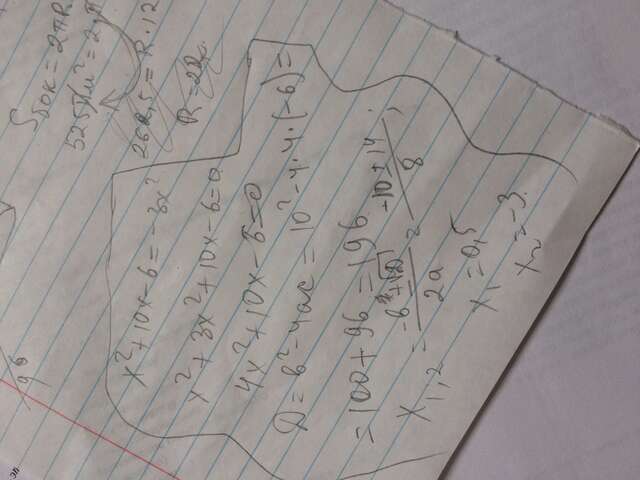 96
Sбок = 2πR
525π м² = 2π
262,5 = R · 12
x² + 10x - 6 = -3x²
x² + 3x² + 10x - 6 = 0
4x² + 10x - 6 = 0
D = b² - 4ac = 10² - 4 · 4 · (-6) =
= 100 + 96 = 196
x₁,₂ = (-b ± √D) / 2a = (-10 ± 14) / 8 ;
x₁ = 0,5
x₂ = -3.